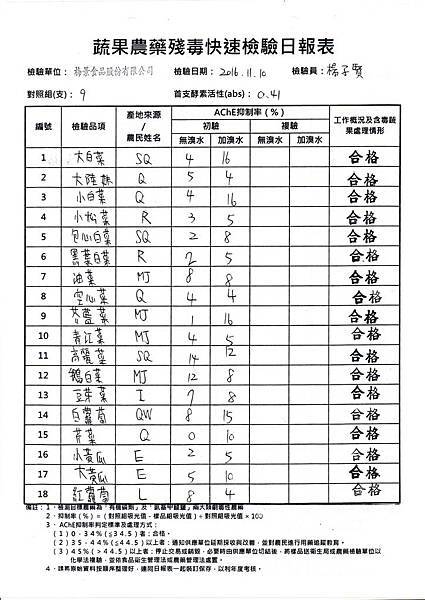 蔬果農藥殘毒快速檢驗日報表
檢驗單位：梅景食品股份有限公司 檢驗日期：2016.11.10 檢驗員：楊子賢
對照組(支)：9 首支酵素活性(abs)：0.41
編號 檢驗品項 產地來源/農民姓名 AChE抑制率(%) 工作概況及含毒蔬果處理情形
初驗 複驗
無溴水 加溴水 無溴水 加溴水
1 大白菜 SQ 4 16 合格
2 大陸妹 Q 5 4 合格
3 小白菜 Q 4 16 合格
4 小松菜 R 3 5 合格
5 包心白菜 SQ 2 8 合格
6 黑葉白菜 R 2 5 合格
7 油菜 MJ 8 8 合格
8 空心菜 Q 4 4 合格
9 芥藍菜 MJ 1 16 合格
10 青江菜 MJ 4 5 合格
11 高麗菜 SQ 14 12 合格
12 鵝白菜 MJ 12 8 合格
13 豆芽菜 I 7 8 合格
14 白蘿蔔 QW 8 15 合格
15 芹菜 Q 0 10 合格
16 小黃瓜 E 2 5 合格
17 大黃瓜 E 5 10 合格
18 紅蘿蔔 L 8 4 合格
備註：1．檢測目標農藥為「有機磷劑」及「氨基甲酸鹽」兩大類劇毒性農藥
2．抑制率(%)＝(對照組吸光值－樣品組吸光值)÷對照組吸光值×100
3．AChE抑制率判定標準及處理方式：
(1)0．34％(≦34.5)者：合格。
(2)35．44％(≦44.5)以上者：通知供應單位延期採收與改善，並對農民進行用藥追蹤教育。
(3)45％(＞44.5)以上者：停止交易或銷毀，必要時由供應單位切結後，將樣品送衛生局或農藥檢驗單位以
化學法複驗，並依食品衛生管理法或農藥管理法處置。
4．請將檢驗資料按順序整理好，連同日報表一起裝訂保存，以利年度考核。